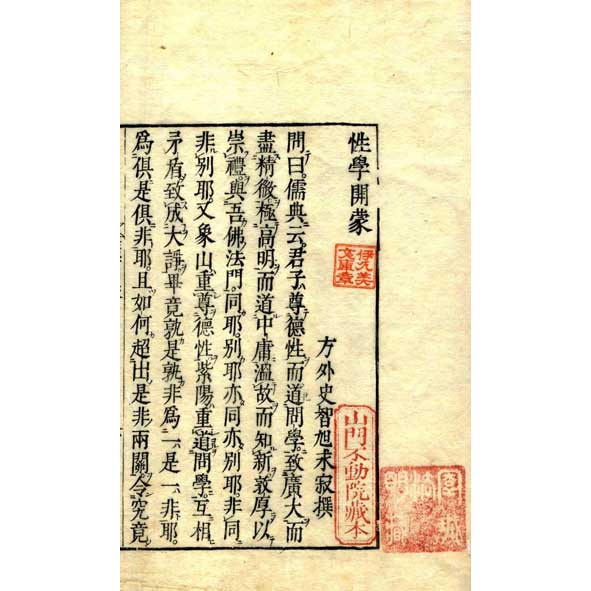 性學開蒙
方外史智旭求寂撰
山門不動院藏本
問曰儒典云君子尊德性而道問學致廣大而
盡精微極高明而道中庸溫故而知新敦厚以
崇禮與吾佛法門同耶別耶亦同亦別耶非同
非別耶又象山重尊德性紫陽重道問學互相
矛盾致成大諍畢竟孰是孰非為一是一非耶
為俱是俱非耶且如何超出是非兩關今究竟